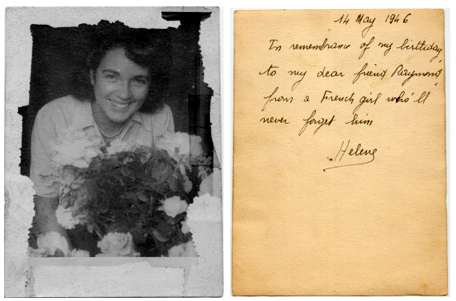 14 May 1946
In remembrance of my birthday,
to my dear friend Raymond,
from a French girl who'll
never forget him
Helene